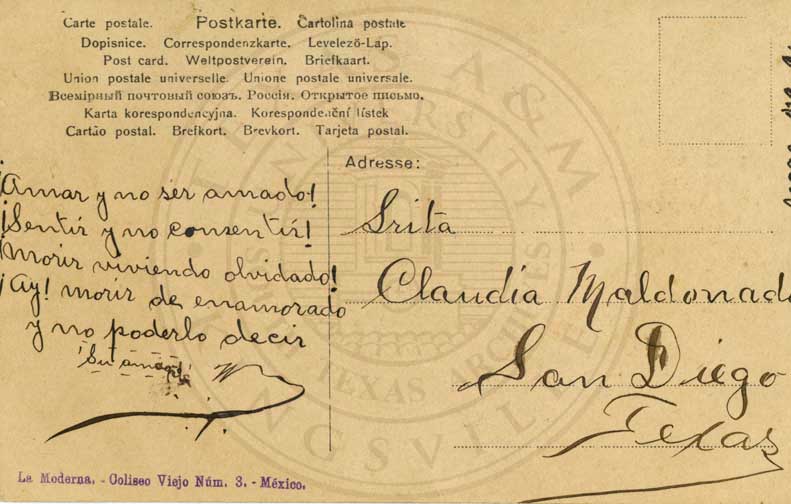 Carte postale. Postkarte. Cartolina postale
Dopisnice. Correspondenzkarte. Levelező-Lap.
Post card. Weltpostverein. Briefkaart.
Union postale universelle. Unione postale universale.
Всемірный почтовый союзъ. Россія. Открытое письмо.
Karta korespondencyjna. Korespondenční lístek
Cartão postal. Brefkort. Brevkort. Tarjeta postal.
¡Amar y no ser amado!
¡Sentir y no consentir!
¡Morir viviendo olvidado!
¡Ay! morir de enamorado
y no poderlo decir
Su
Adresse:
Srita
Claudia Maldonado
San Diego
Texas
La Moderna. - Coliseo Viejo Núm. 3. - México.
SOUTH TEXAS ARCHIVES
TEXAS A&M UNIVERSITY
KINGSVILLE